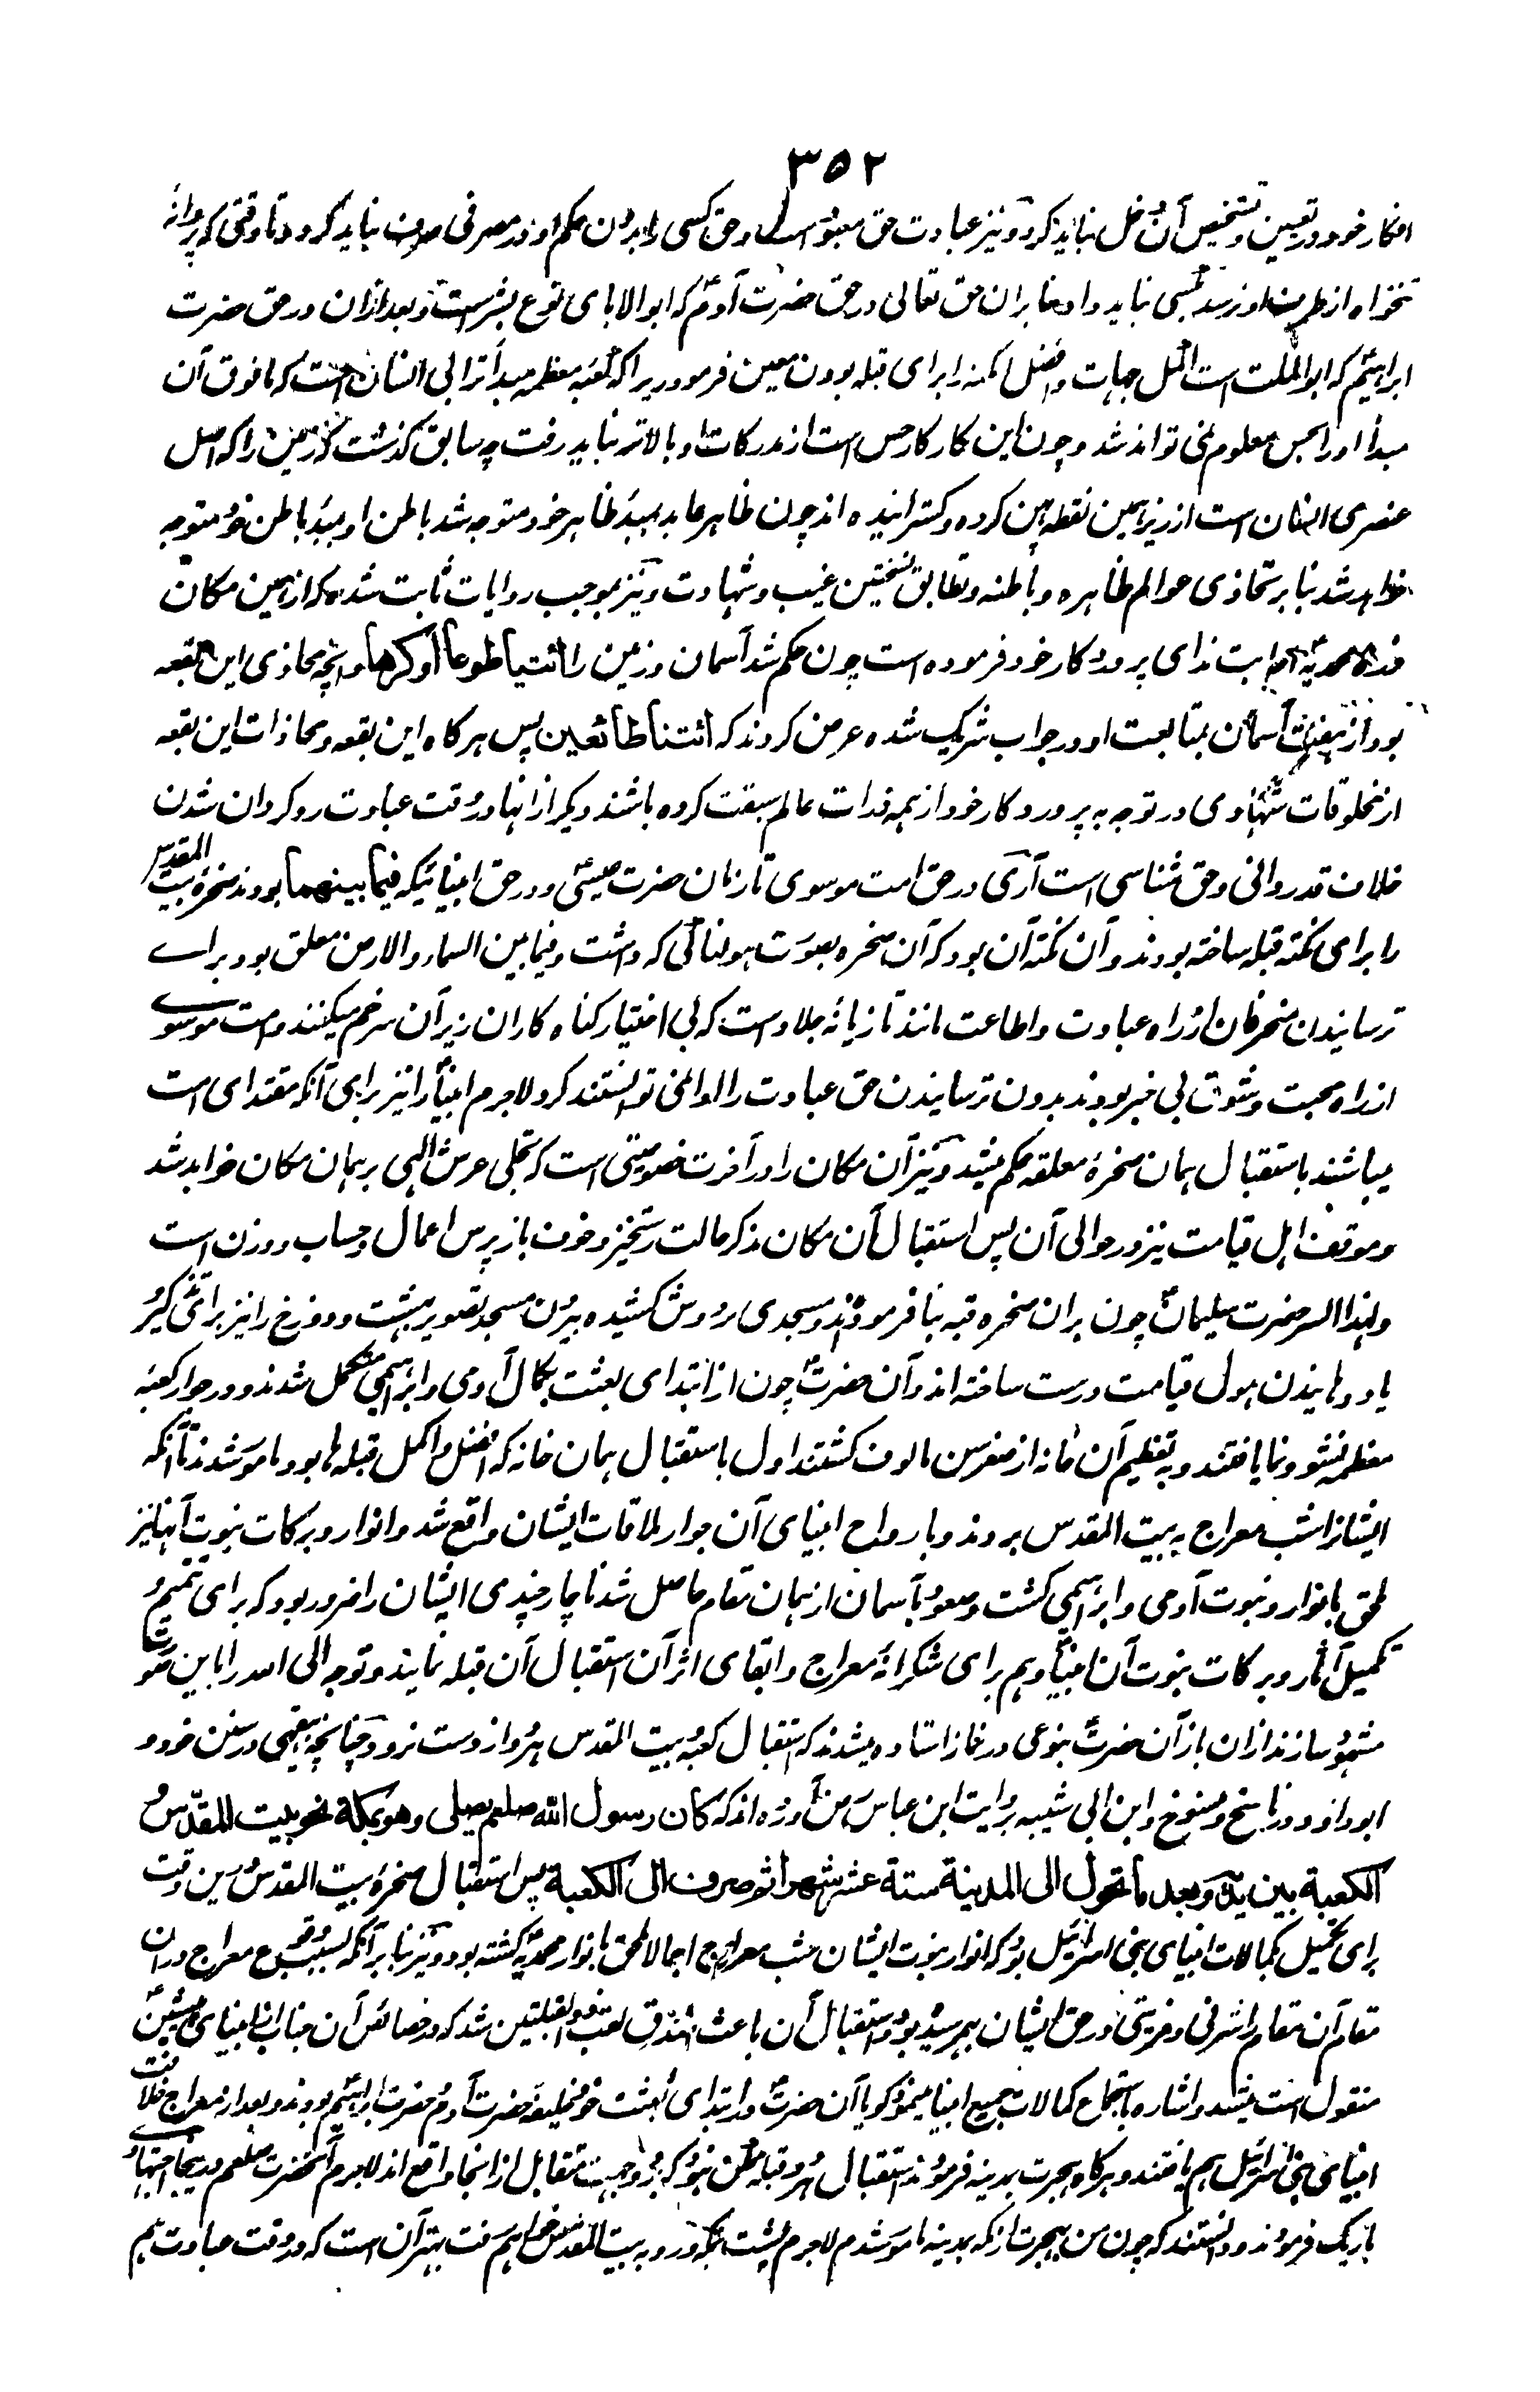 ٣٥٢
افکار خود در تعیین و تشخیص آن دخل نباید کرد و نیز عبادت حق معبود است و حق کسی را بدون حکم او در مصرفی صرف نباید کرد و تا وقتی که پروانه
تنخواه از طرف او نرسد بکسی نباید داد بنا بران حق تعالی در حق حضرت آدمؑ که ابو الابای نوع بشر است و بعد ازان در حق حضرت
ابراهیمؑ که ابو الملت است اکمل جهات و افضل امکنه را برای قبله بودن معین فرمود زیرا که کعبه معظمه مبدأ ترابی انسان است که ما فوق آن
مبدأ او را بحس معلوم نمی تواند شد و چون این کار کار حس است از مدرکات او بالاتر نباید رفت چه سابق گذشت که زمین را که اصل
عنصری انسان است از زیر همین نقطه پهن کرده و گسترانیده اند چون ظاهر عابد بمبدأ ظاهر خود متوجه شد باطن او بمبدأ باطن خود متوجه
خواهد شد بنا بر تحاذی عوالم ظاهره و باطنه و تطابق نسختین غیب و شهادت و نیز بموجب روایات ثابت شده که از همین مکان
ذره محمدیهؐ اجابت ندای پروردگار خود فرموده است چون حکم شد آسمان و زمین را ائتیا طوعا او کرها و آنچه محاذی این بقعه
بود از هفت آسمان بمتابعت او در جواب شریک شده عرض کردند که ائتنا طائعین پس هر گاه این بقعه و محاذات این بقعه
از مخلوقات شهادی در توجه به پروردگار خود از همه ذرات عالم سبقت کرده باشند دیگر از انها در وقت عبادت رو گردان شدن
خلاف قدردانی و حق شناسی است آری در حق امت موسوی تا زمان حضرت عیسیؑ و در حق انبیائیکه فیما بینهما بودند صخره بیت المقدس
را برای نکته قبله ساخته بودند و آن نکته آن بود که آن صخره بصورت هولناکی که داشت و فیما بین السماء و الارض معلق بود برای
ترسانیدن منحرفان از راه عبادت و اطاعت مانند تازیانه جلاد است که بی اختیار گناه کاران زیر آن سر خم میکنند و امت موسوی
از راه محبت و شوق بی خبر بودند بدون ترسانیدن حق عبادت را ادا نمی توانستند کرد لاجرم انبیاؑ را نیز برای آنکه مقتدای امت
میباشند باستقبال همان صخره معلقه حکم میشد و نیز آن مکان را در آخرت خصوصیتی است که تجلی عرش الهی بر همان مکان خواهد شد
و موقف اهل قیامت نیز در حوالی آن پس استقبال آن مکان مذکر حالت رستخیز و خوف باز پرس اعمال و حساب و وزن است
و لهذا السر حضرت سلیمانؑ چون بران صخره قبه بنا فرمودند و مسجدی بر دوش کشیده بیرون مسجد تصویر بهشت و دوزخ را نیز برای تذکیر و
یاد دهانیدن هول قیامت درست ساخته اند و آن حضرتؐ چون از ابتدای بعثت بکمال آدمی و ابراهیمی متکمل شدند و در جوار کعبه
معظمه نشو و نما یافتند و به تعظیم آن خانه از صغر سن مالوف گشتند اول باستقبال همان خانه که افضل و اکمل قبله ها بود مامور شدند تا آنکه
ایشانرا شب معراج به بیت المقدس بردند و با رواح انبیای آن جوار ملاقات ایشان واقع شد و انوار و برکات نبوت آنها نیز
ملحق بانوار و نبوت آدمی و ابراهیمی گشت و صعود بآسمان از همان مقام حاصل شد ناچار چندی ایشان را ضرور بود که برای تتمیم و
تکمیل آثار و برکات نبوت آن انبیاؑ و هم برای شکرانه معراج و ابقای اثر آن استقبال آن قبله نمایند و توجه الی الله را باین صورت
مشهود سازند ازان باز آن حضرتؐ بنوعی در نماز استاده میشدند که استقبال کعبه و بیت المقدس هر دو از دست نرود چنانچه بیهقی در سنن خود و
ابو داود در ناسخ و منسوخ و ابن ابی شیبه بروایت ابن عباسؓ آورده اند که کان رسول الله صلعم یصلی وهو بمکة نحو بیت المقدس و
الکعبة بین یدیه و بعد ما تحول الی المدینة ستة عشر شهرا ثم صرف الی الکعبة پس استقبال صخره بیت المقدس درین وقت
برای تکمیل بکمالات انبیای بنی اسرائیل بود که انوار نبوت ایشان شب معراج اجمالا ملحق بانوار محمدیهؐ گشته بود و نیز بنا بر آنکه بسبب وقوع معراج دران
مقام آن مقام را شرفی و مزیتی در حق ایشان بهم رسیده بود و استقبال آن باعث صدق لقب ذو القبلتین شد که در خصائص آن جناب از انبیای پیشینؑ
منقول است میشد و اشاره باجتماع کمالات جمیع انبیا مینمود گویا آن حضرتؐ در ابتدای بعثت خود خلیفه حضرت آدمؑ و حضرت ابراهیمؑ بودند و بعد از معراج خلافت
انبیای بنی اسرائیل هم یافتند و هر گاه هجرت بمدینه فرمودند استقبال هر دو قبله ممکن نبود که هر دو جهت متقابل از انجا واقع اند لاجرم آنحضرت صلعم در ینجا اجتهاد
باریک فرمودند و دانستند که چون من بهجرت از مکه بمدینه مامور شدم لاجرم پشت بمکه و رو به بیت المقدس خواهم رفت بهتر آن است که در وقت عبادت هم